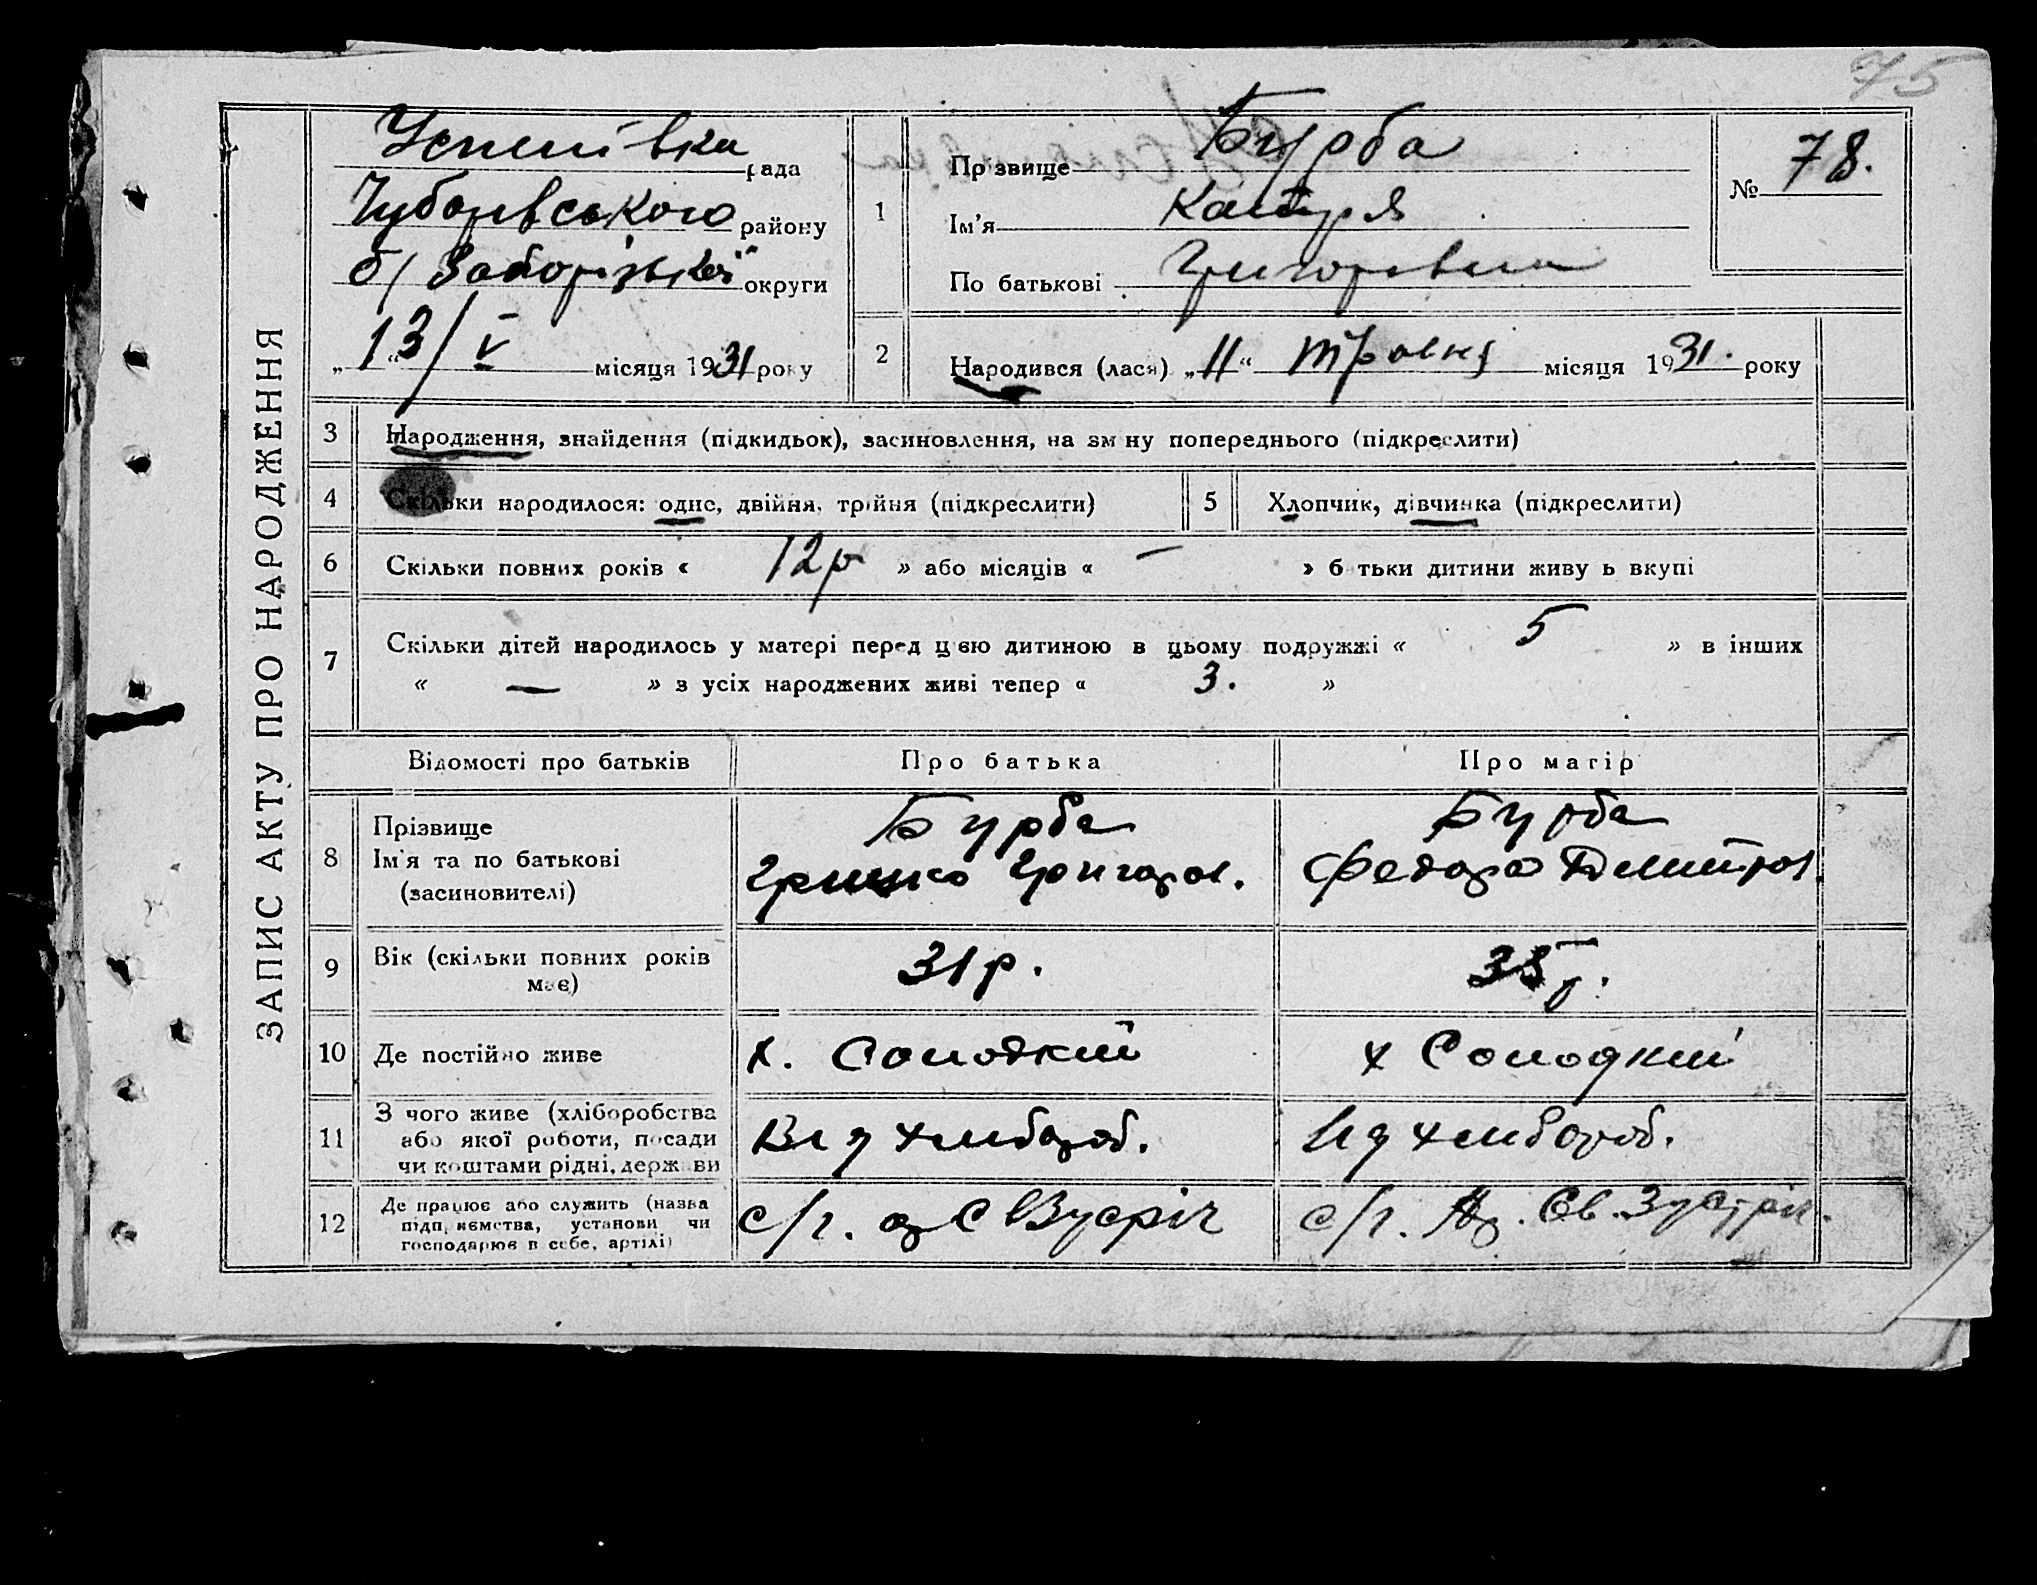 75
ЗАПИС АКТУ ПРО НАРОДЖЕННЯ
Успенівка рада
Чубарівського району
б/ Запорізької округи
„13/V“ місяця 1931 року
1
Прізвище Бурба
Ім'я
По батькові Григорівна
№ 78.
2
Народився (лася) „11“ Травня місяця 1931. року
3 Народження, знайдення (підкидьок), засиновлення, на зміну попереднього (підкреслити)
4 Скільки народилося: одне, двійня, трійня (підкреслити)
5 Хлопчик, дівчинка (підкреслити)
6 Скільки повних років « 12 р » або місяців « — » батьки дитини живуть вкупі
7 Скільки дітей народилось у матері перед цією дитиною в цьому подружжі « 5 » в інших
« — » з усіх народжених живі тепер « 3. »
Відомості про батьків
Про батька
Про матір
8 Прізвище
Ім'я та по батькові
(засиновителі)
Бурба
Грицько Григоров.
Бурба
Федора Дмитров.
9 Вік (скільки повних років
має)
31 р.
35 р.
10 Де постійно живе
х. Солодкий
х Солодкий
11 З чого живе (хліборобства
або якої роботи, посади
чи коштами рідні, держави
Від хлибороб.
Ид хлибороб.
12 Де працює або служить (назва
підприємства, установи чи
господарює в себе, артілі)
с/г. СвЗустріч
с/г. Ар. Св. Зустріч.